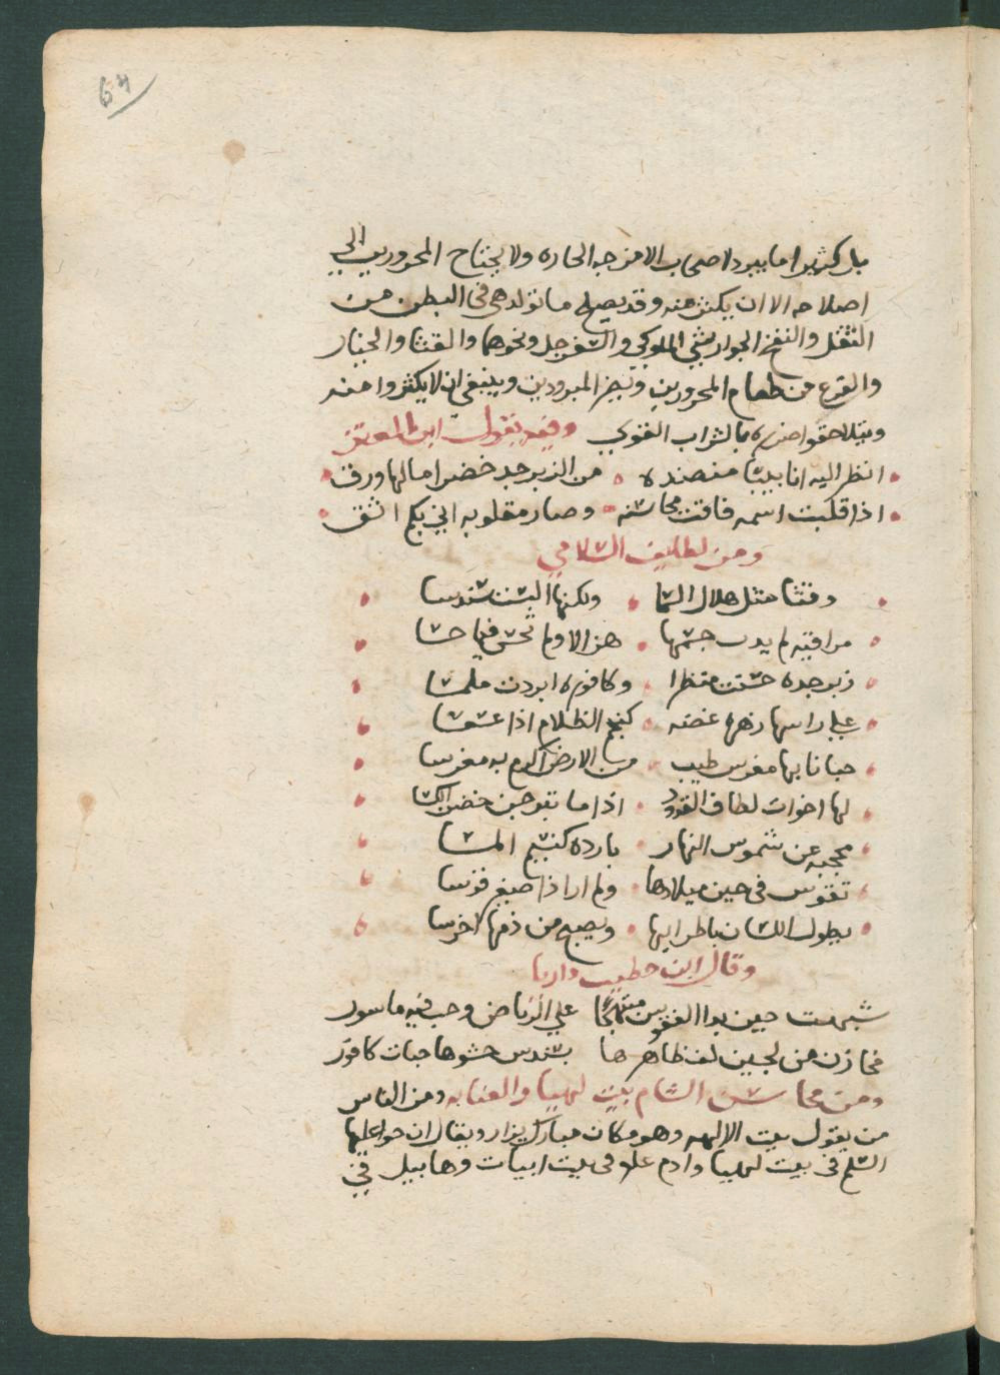 64
بل كثيرا ما يبرد اصحاب الامزجه الحاره ولا يحتاج المحرورين الي
اصلاحه الا ان يكثر منه وقد يصلح ما تولد هي في البطن من
الثقل والنفخ الجوارشني الملوكي والسفرجل ونحوهما والقثا والخيار
والقرع من طعام المحرورين ويضر المبرودين وينبغي ان لا يكثروا منه
ويتلاحقوا ضرره بالشراب القوي وفيه يقول ابن المعتز
انظر اليه انابيبا منضده من الزبرجد خضرا ما لها ورق
اذا قلبت اسمه فاقت محاسنه وصار مقلوبه اني بكم اثق
ومن لطايف السلامي
وقثا مثل هلال السما ولكنها البست سندسا
مرافيه لم يدب جسمها هزالا ولم تحس فيها حسا
زبرجده حسنت منظرا وكافوره ابردت ملمسا
علي راسها زهره غضه كنجم الظلام اذا عسعسا
حبانا بها مغرس طيب من الارض اكرم به مغرسا
لها اخوات لطاف القدود اذا ما تبرجن خضر الكسا
محجبه عن شموس النهار بارده كنسيم المسا
تقوس في حين ميلادها ولم ار اذا صغر قوسا
يطول اللسان باطرايها ويصبح من ذمها اخرسا
وقال ابن خطيب داريا
شبهت حين بدا الفقوس مبتهجا علي الرياض وحب فيه ماسور
مخازن من لجين لف ظاهرها بسندس حشوها حبات كافور
ومن محاسن الشام بيت لهيا والعنابه ومن الناس
من يقول بيت الالهه وهو مكان مبارك يزار ويقال ان حوا عليها
السلم في بيت لهيا وادم علم في بيت ابيات وهابيل في